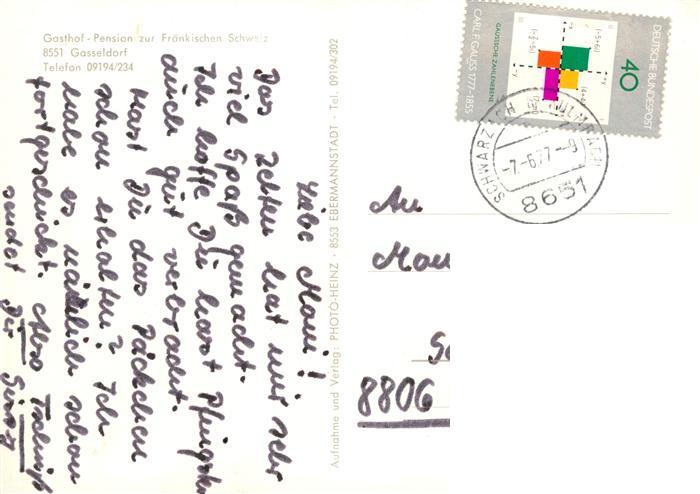 Gasthof - Pension zur Fränkischen Schweiz
8551 Gasseldorf
Telefon 09194/234
Liebe Moni!
Das Zelten hat mir sehr
viel Spaß gemacht.
Ich hoffe Du hast Pfingsten
auch gut verbracht.
Hast Du das Päckchen
schon erhalten? Ich
habe es nämlich schon
fortgeschickt. Also Tschüß
sendet Dir
Aufnahme und Verlag: PHOTO-HEINZ · 8553 EBERMANNSTADT · Tel. 09194/302
DEUTSCHE BUNDESPOST
40
GAUSSSCHE ZAHLENEBENE
CARL F. GAUSS 1777-1855
SCHWARZACH KULMBACH
-7.-6.77-9
8651
An
8806